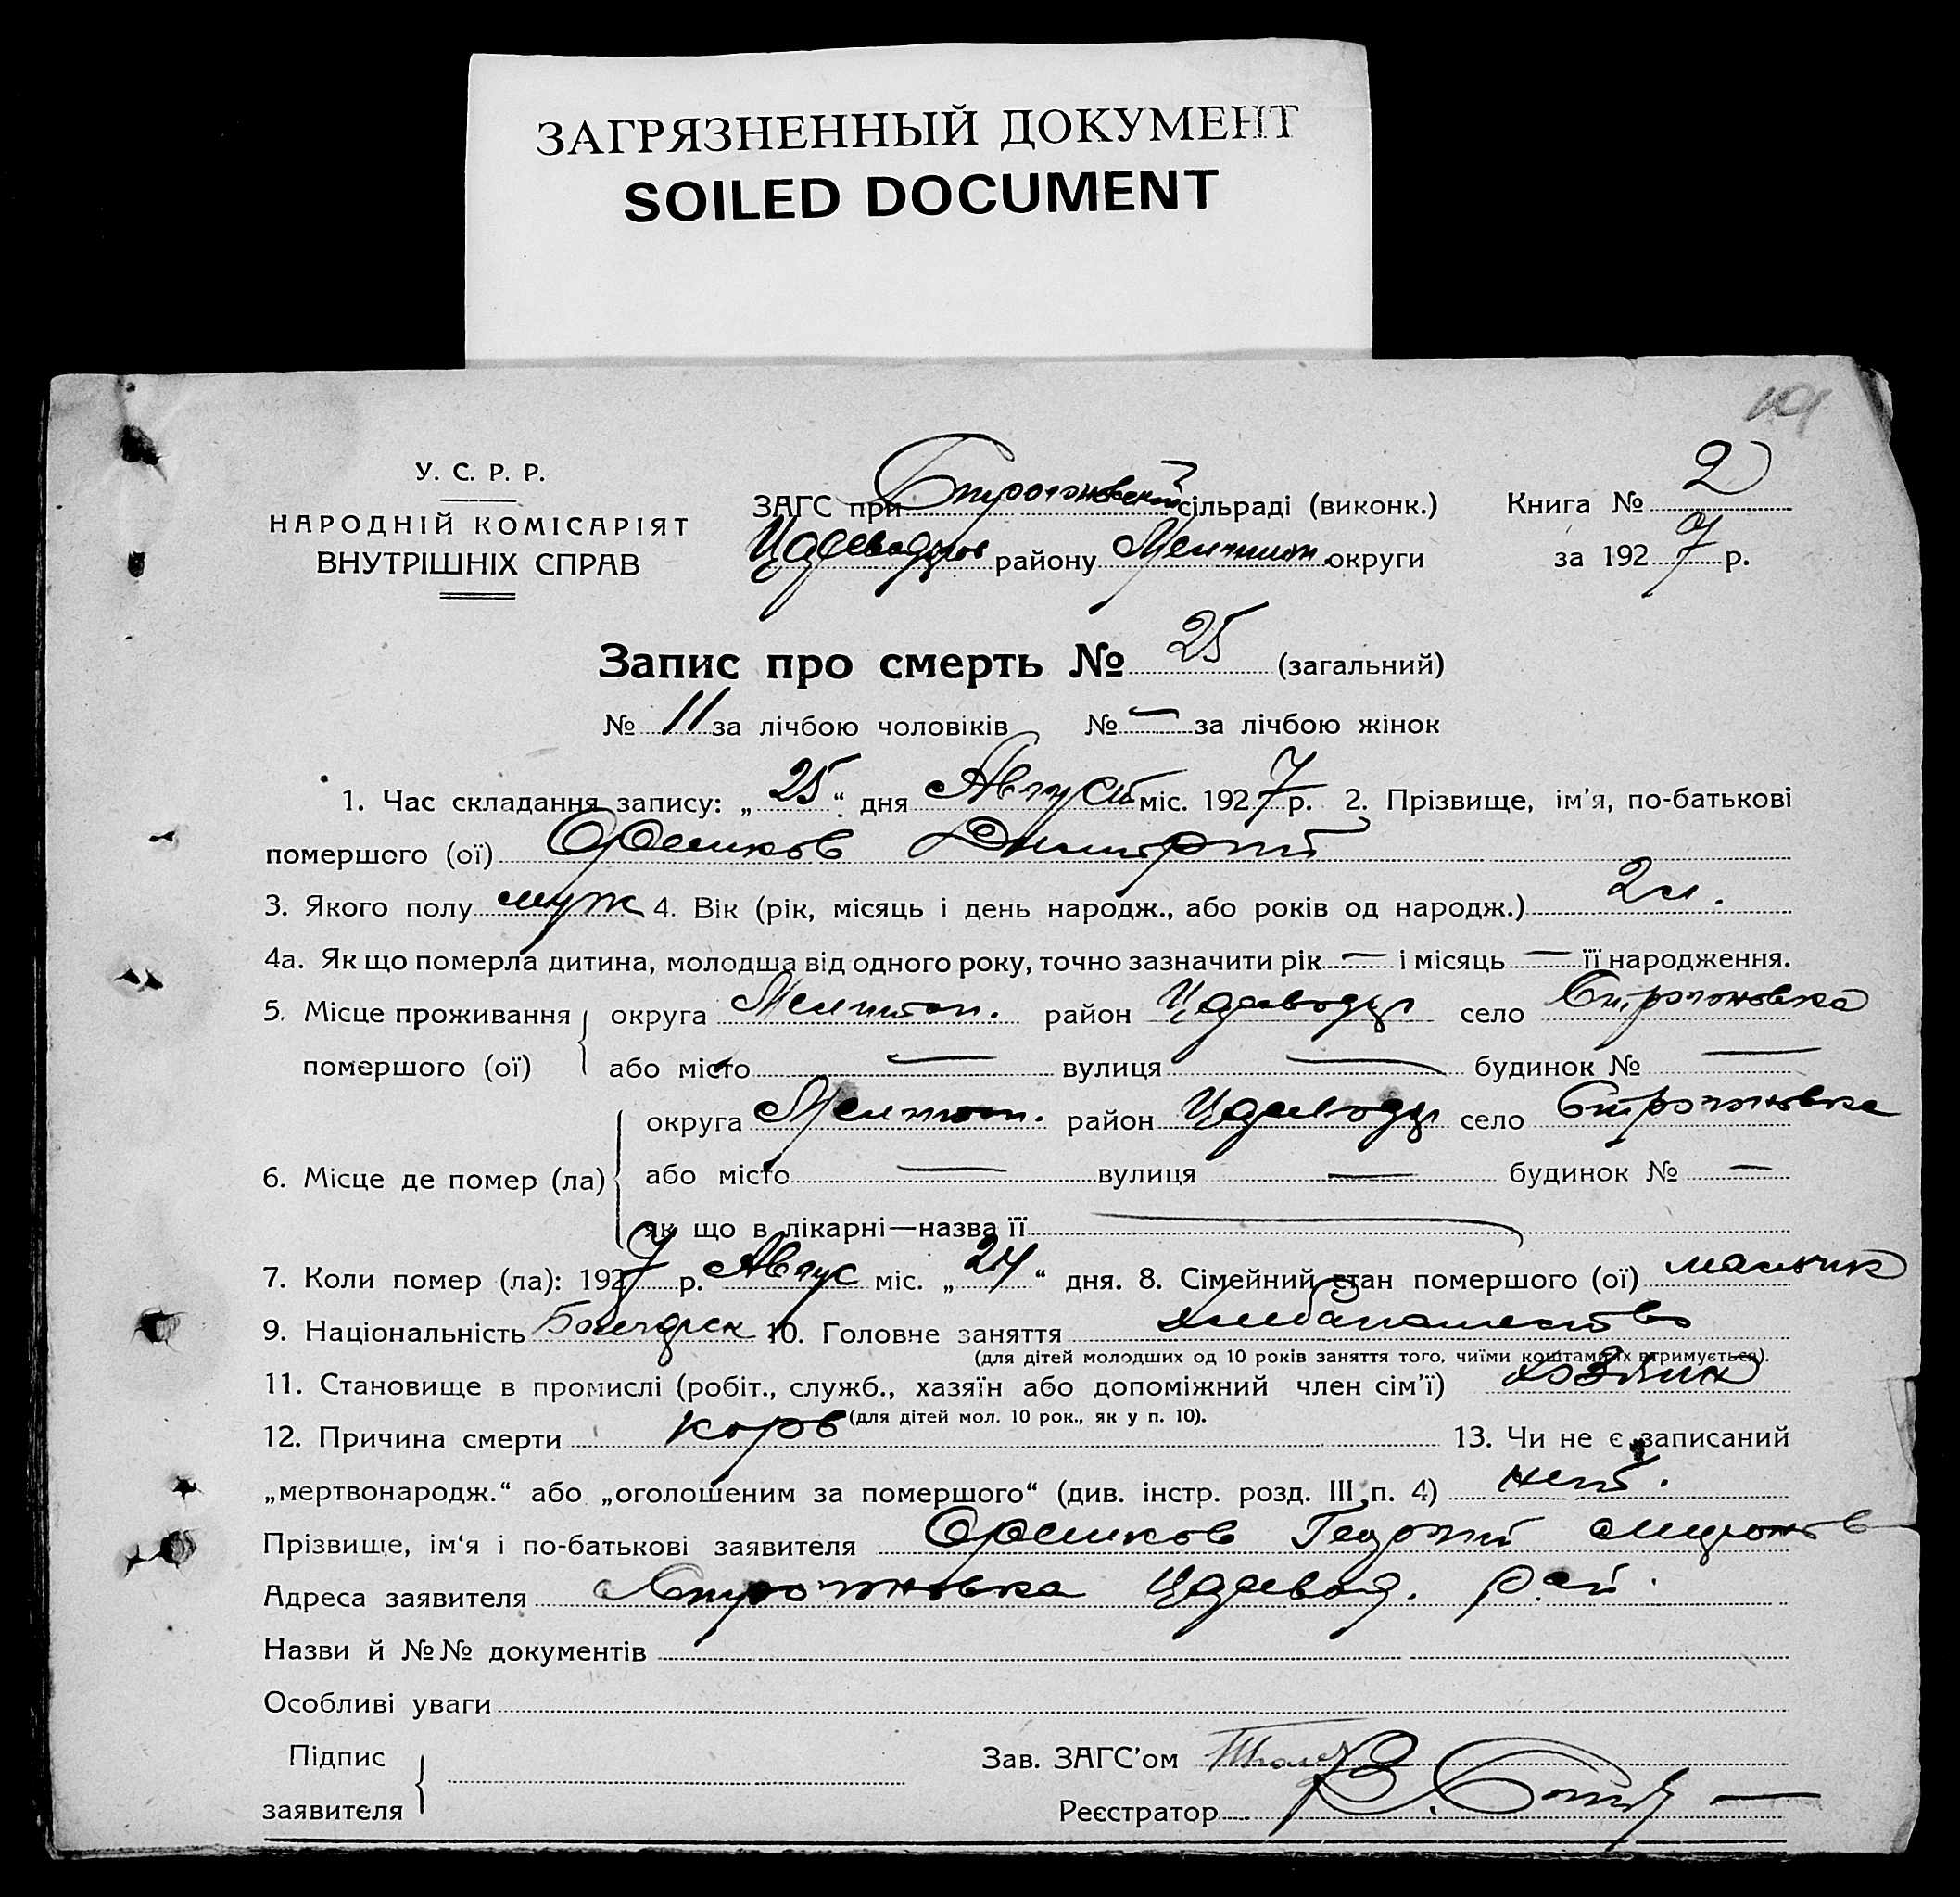 ЗАГРЯЗНЕННЫЙ ДОКУМЕНТ
SOILED DOCUMENT
У. С. Р. Р.
НАРОДНІЙ КОМІСАРІЯТ
ВНУТРІШНІХ СПРАВ
ЗАГС при Строгоновской сільраді (виконк.)
району Мелитоп. округи
Книга № 2
за 1927 р.
Запис про смерть № 25 (загальний)
№ 11 за лічбою чоловіків № — за лічбою жінок
1. Час складання запису: „ 25 “ дня Август міс. 1927 р. 2. Прізвище, ім'я, по-батькові
помершого (ої) Орешков Димитрий
3. Якого полу муж 4. Вік (рік, місяць і день народж., або років од народж.) 2
4а. Як що померла дитина, молодша від одного року, точно зазначити рік — і місяць — її народження.
5. Місце проживання помершого (ої) округа Мелитоп. район село Строгоновка
або місто — вулиця — будинок № —
6. Місце де помер (ла) округа Мелитоп. район село Строгоновка
або місто — вулиця — будинок № —
як що в лікарні—назва її —
7. Коли помер (ла): 1927 р. Авгус міс. „ 24 “ дня. 8. Сімейний стан помершого (ої) мальчик
9. Національність 10. Головне заняття хлебопашество
(для дітей молодших од 10 років заняття того, чиїми коштами їх втримується).
11. Становище в промислі (робіт., служб., хазяїн або допоміжний член сім'ї) хозяин
(для дітей мол. 10 рок., як у п. 10).
12. Причина смерти корь 13. Чи не є записаний
„мертвонародж.“ або „оголошеним за помершого“ (див. інстр. розд. III п. 4) нет.
Прізвище, ім'я і по-батькові заявителя Орешков Георгий
Адреса заявителя Строгоновка рай.
Назви й №№ документів
Особливі уваги
Підпис заявителя
Зав. ЗАГС'ом
Реєстратор